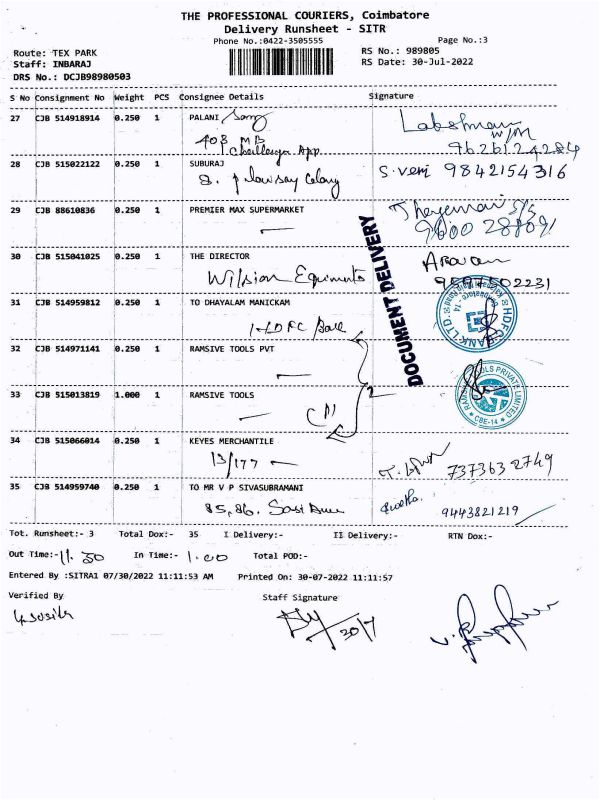 THE PROFESSIONAL COURIERS, Coimbatore
Delivery Runsheet - SITR
Phone No.:0422-3505555
Page No.:3
Route: TEX PARK
Staff: INBARAJ
DRS No.: DCJB98980503
RS No.: 989805
RS Date: 30-Jul-2022
S No Consignment No Weight PCS Consignee Details Signature
27 CJB 514918914 0.250 1 PALANI
403 MB
App
9626124284
28 CJB 515022122 0.250 1 SUBURAJ
S. veni 9842154316
8.
29 CJB 88610836 0.250 1 PREMIER MAX SUPERMARKET
30 CJB 515041025 0.250 1 THE DIRECTOR
31 CJB 514959812 0.250 1 TO DHAYALAM MANICKAM
HDFC Bank
DOCUMENT DELIVERY
HDFC BANK LTD
32 CJB 514971141 0.250 1 RAMSIVE TOOLS PVT
33 CJB 515013819 1.000 1 RAMSIVE TOOLS
TOOLS PRIVATE LIMITED
CBE-14
34 CJB 515066014 0.250 1 KEYES MERCHANTILE
13/177
7373632749
35 CJB 514959740 0.250 1 TO MR V P SIVASUBRAMANI
85,86.
9443821219
Tot. Runsheet:- 3 Total Dox:- 35 I Delivery:- II Delivery:- RTN Dox:-
Out Time:- 11.30 In Time:- 1.00 Total POD:-
Entered By :SITRA1 07/30/2022 11:11:53 AM Printed On: 30-07-2022 11:11:57
Verified By Staff Signature
30/7